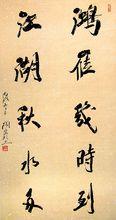 鴻雁幾時到
江湖秋水多